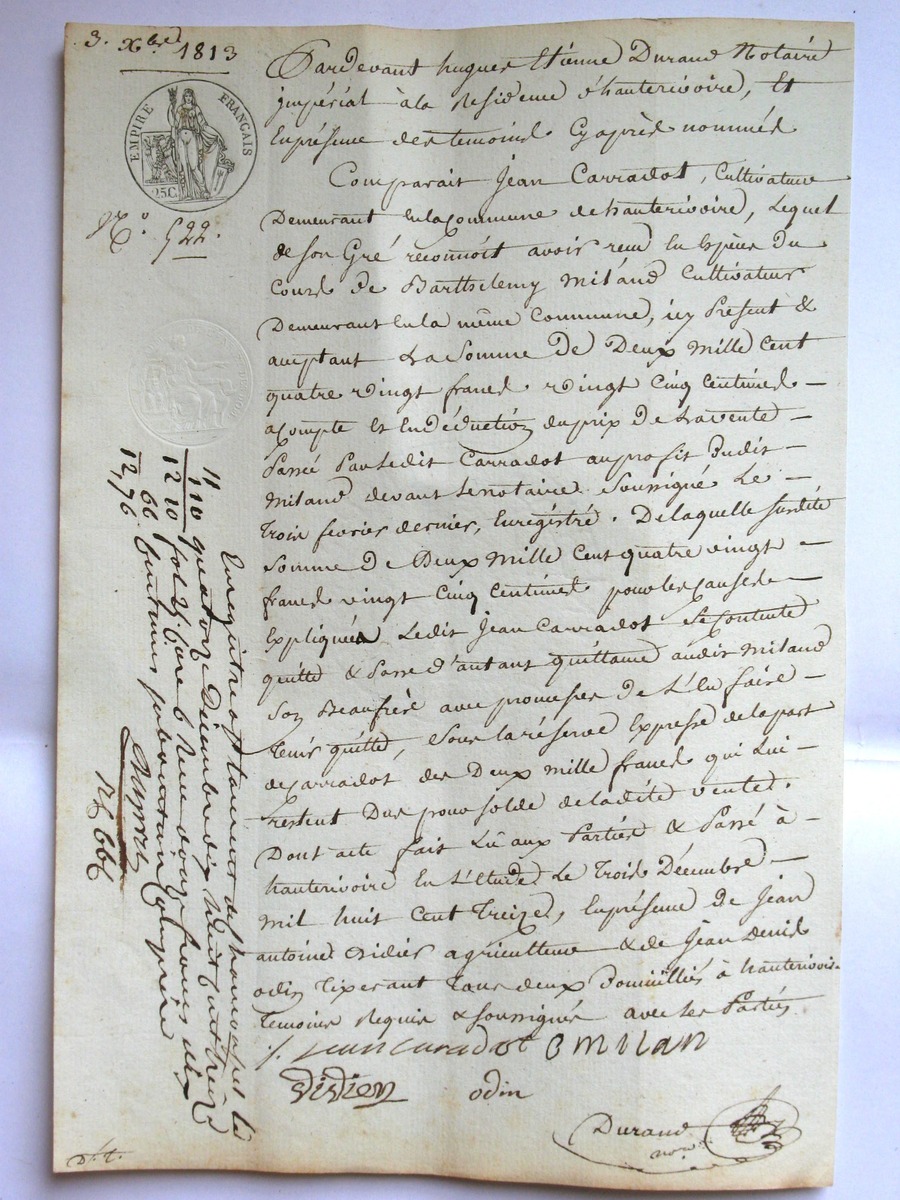 3. Xbre 1813
EMPIRE FRANÇAIS
25C.
N.° 522.
Pardevant hugues Etienne Durand Notaire
impérial à la Residence d'hauterivoire, Et
En présence des temoins Cyaprès nommés
Comparait Jean Carradot, Cultivateur
Demeurant en la Commune de hauterivoire, Lequel
de son Gré reconnoit avoir recu En Espèces du
Cours de Barthelemy Miland Cultivateur
Demeurant En la même Commune, icy Present &
acceptant La Somme de Deux Mille Cent
quatre vingt francs vingt Cinq Centimes —
acompte Et En déduction du prix de La vente —
Passé Par Ledit Carradot au profit Dudit —
Miland devant Le notaire Soussigné Le —
Trois fevrier dernier, Enregistré. De laquelle Susdite
Somme de Deux Mille Cent quatre vingt —
francs vingt Cinq Centimes pour les causes —
Expliquées Ledit Jean Carradot Se Contente
quitte & Passe d'autant quittance audit Miland
Son Beaufrère avec promesse de L'En faire —
Tenir quitte, Sous la réserve Expresse de la part
de Carradot des Deux Mille francs qui Lui —
restent Dus pour Solde de ladite vente.
Dont acte fait Lû aux Parties & Passé à —
hauterivoire En L'Etude Le Trois Décembre —
Mil huit Cent Treize, En présence de Jean
antoine Didier agriculteur & de Jean Denis
odin Tixerant Tous deux Domiciliés à hauterivoire
Temoins Requis & Soussignés avec les Parties
jean caradot B milan
Didier odin
Durand
not.re
Enregistré à St Laurent de Chamousset le
quatorze Décembre dix huit cent treize
fol. 25. Case 6 Recu douze francs dix
centimes
11
1 10
12 10
66
12,76